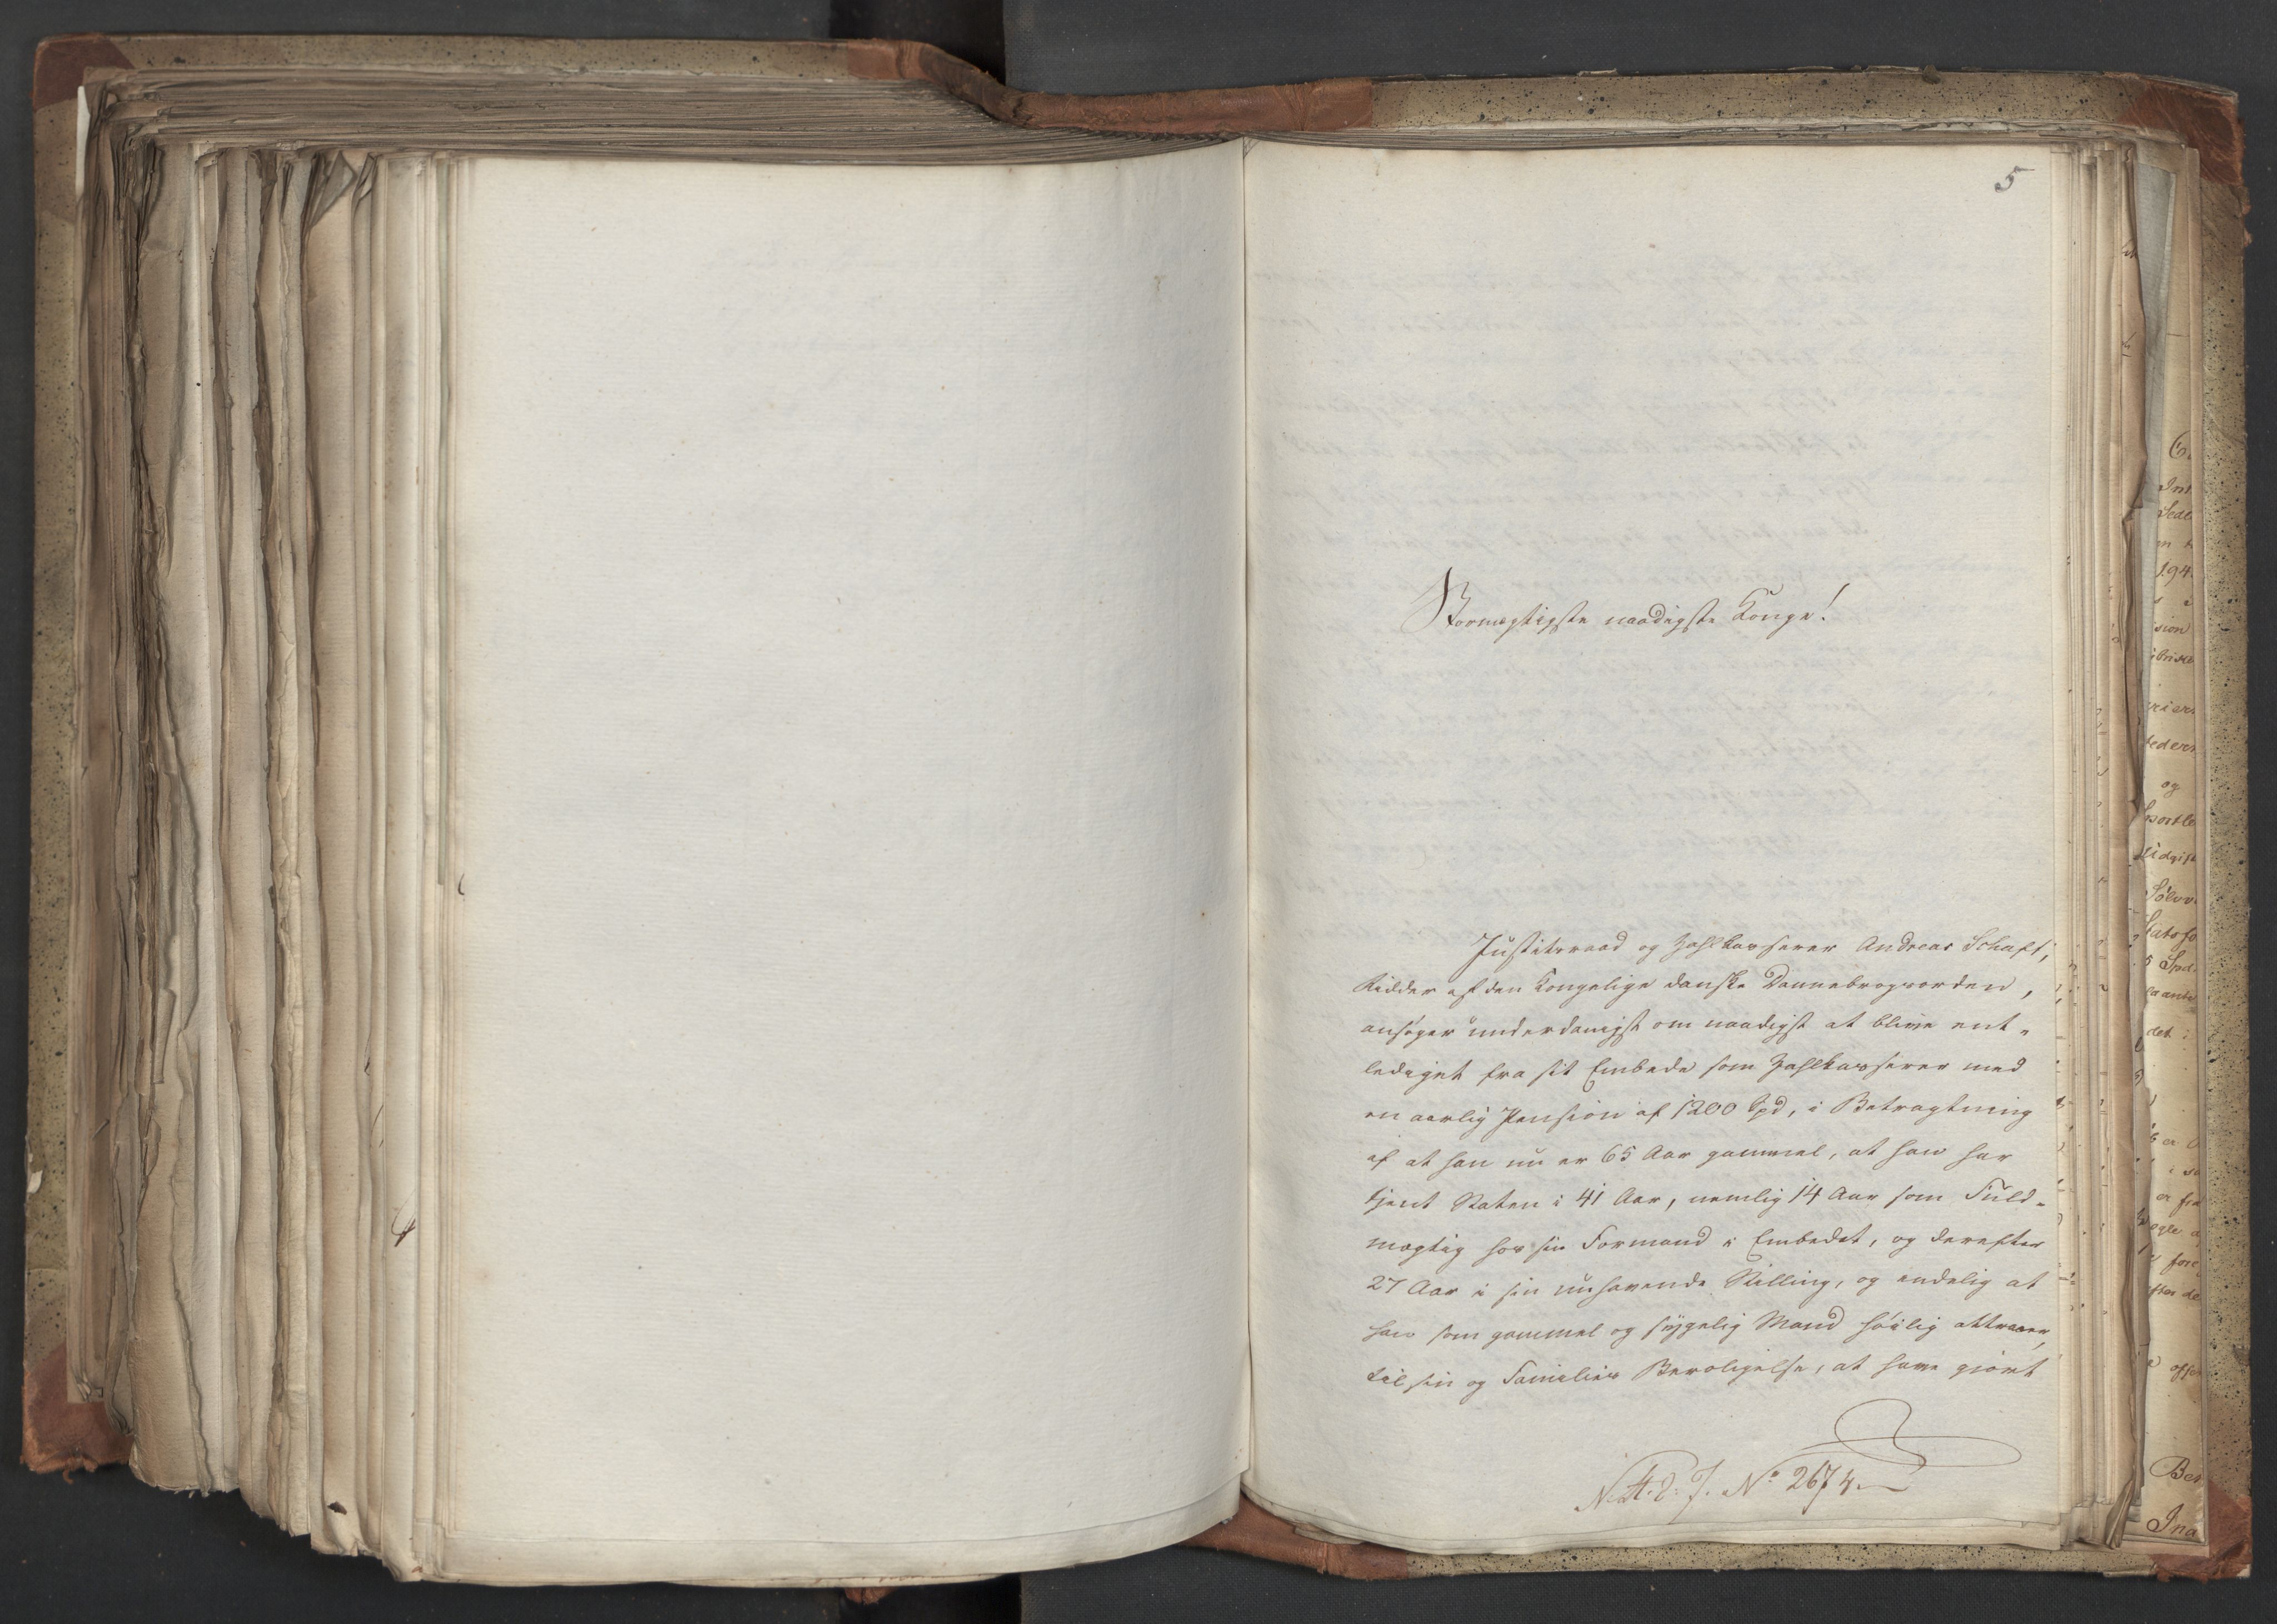 5
Stormægtigste naadigste Konge!
Justitsraad og Zahlkasserer Andreas Schaft,
Ridder af den Kongelige danske Dannebrogsorden,
ansøger underdanigst om naadigst at blive ent-
lediget fra sit Embede som Zahlkasserer med
en aarlig Pension af 1200 Spd, i Betragtning
af at han nu er 65 Aar gammel, at han har
tjent Staten i 41 Aar, nemlig 14 Aar som Fuld-
mægtig hos sin Formand i Embedet, og derefter
27 Aar i sin nuhavende Stilling, og endelig at
han som gammel og sygelig Mand høilig attraaer,
til sin og Families Beroligelse, at have gjort
No 2674